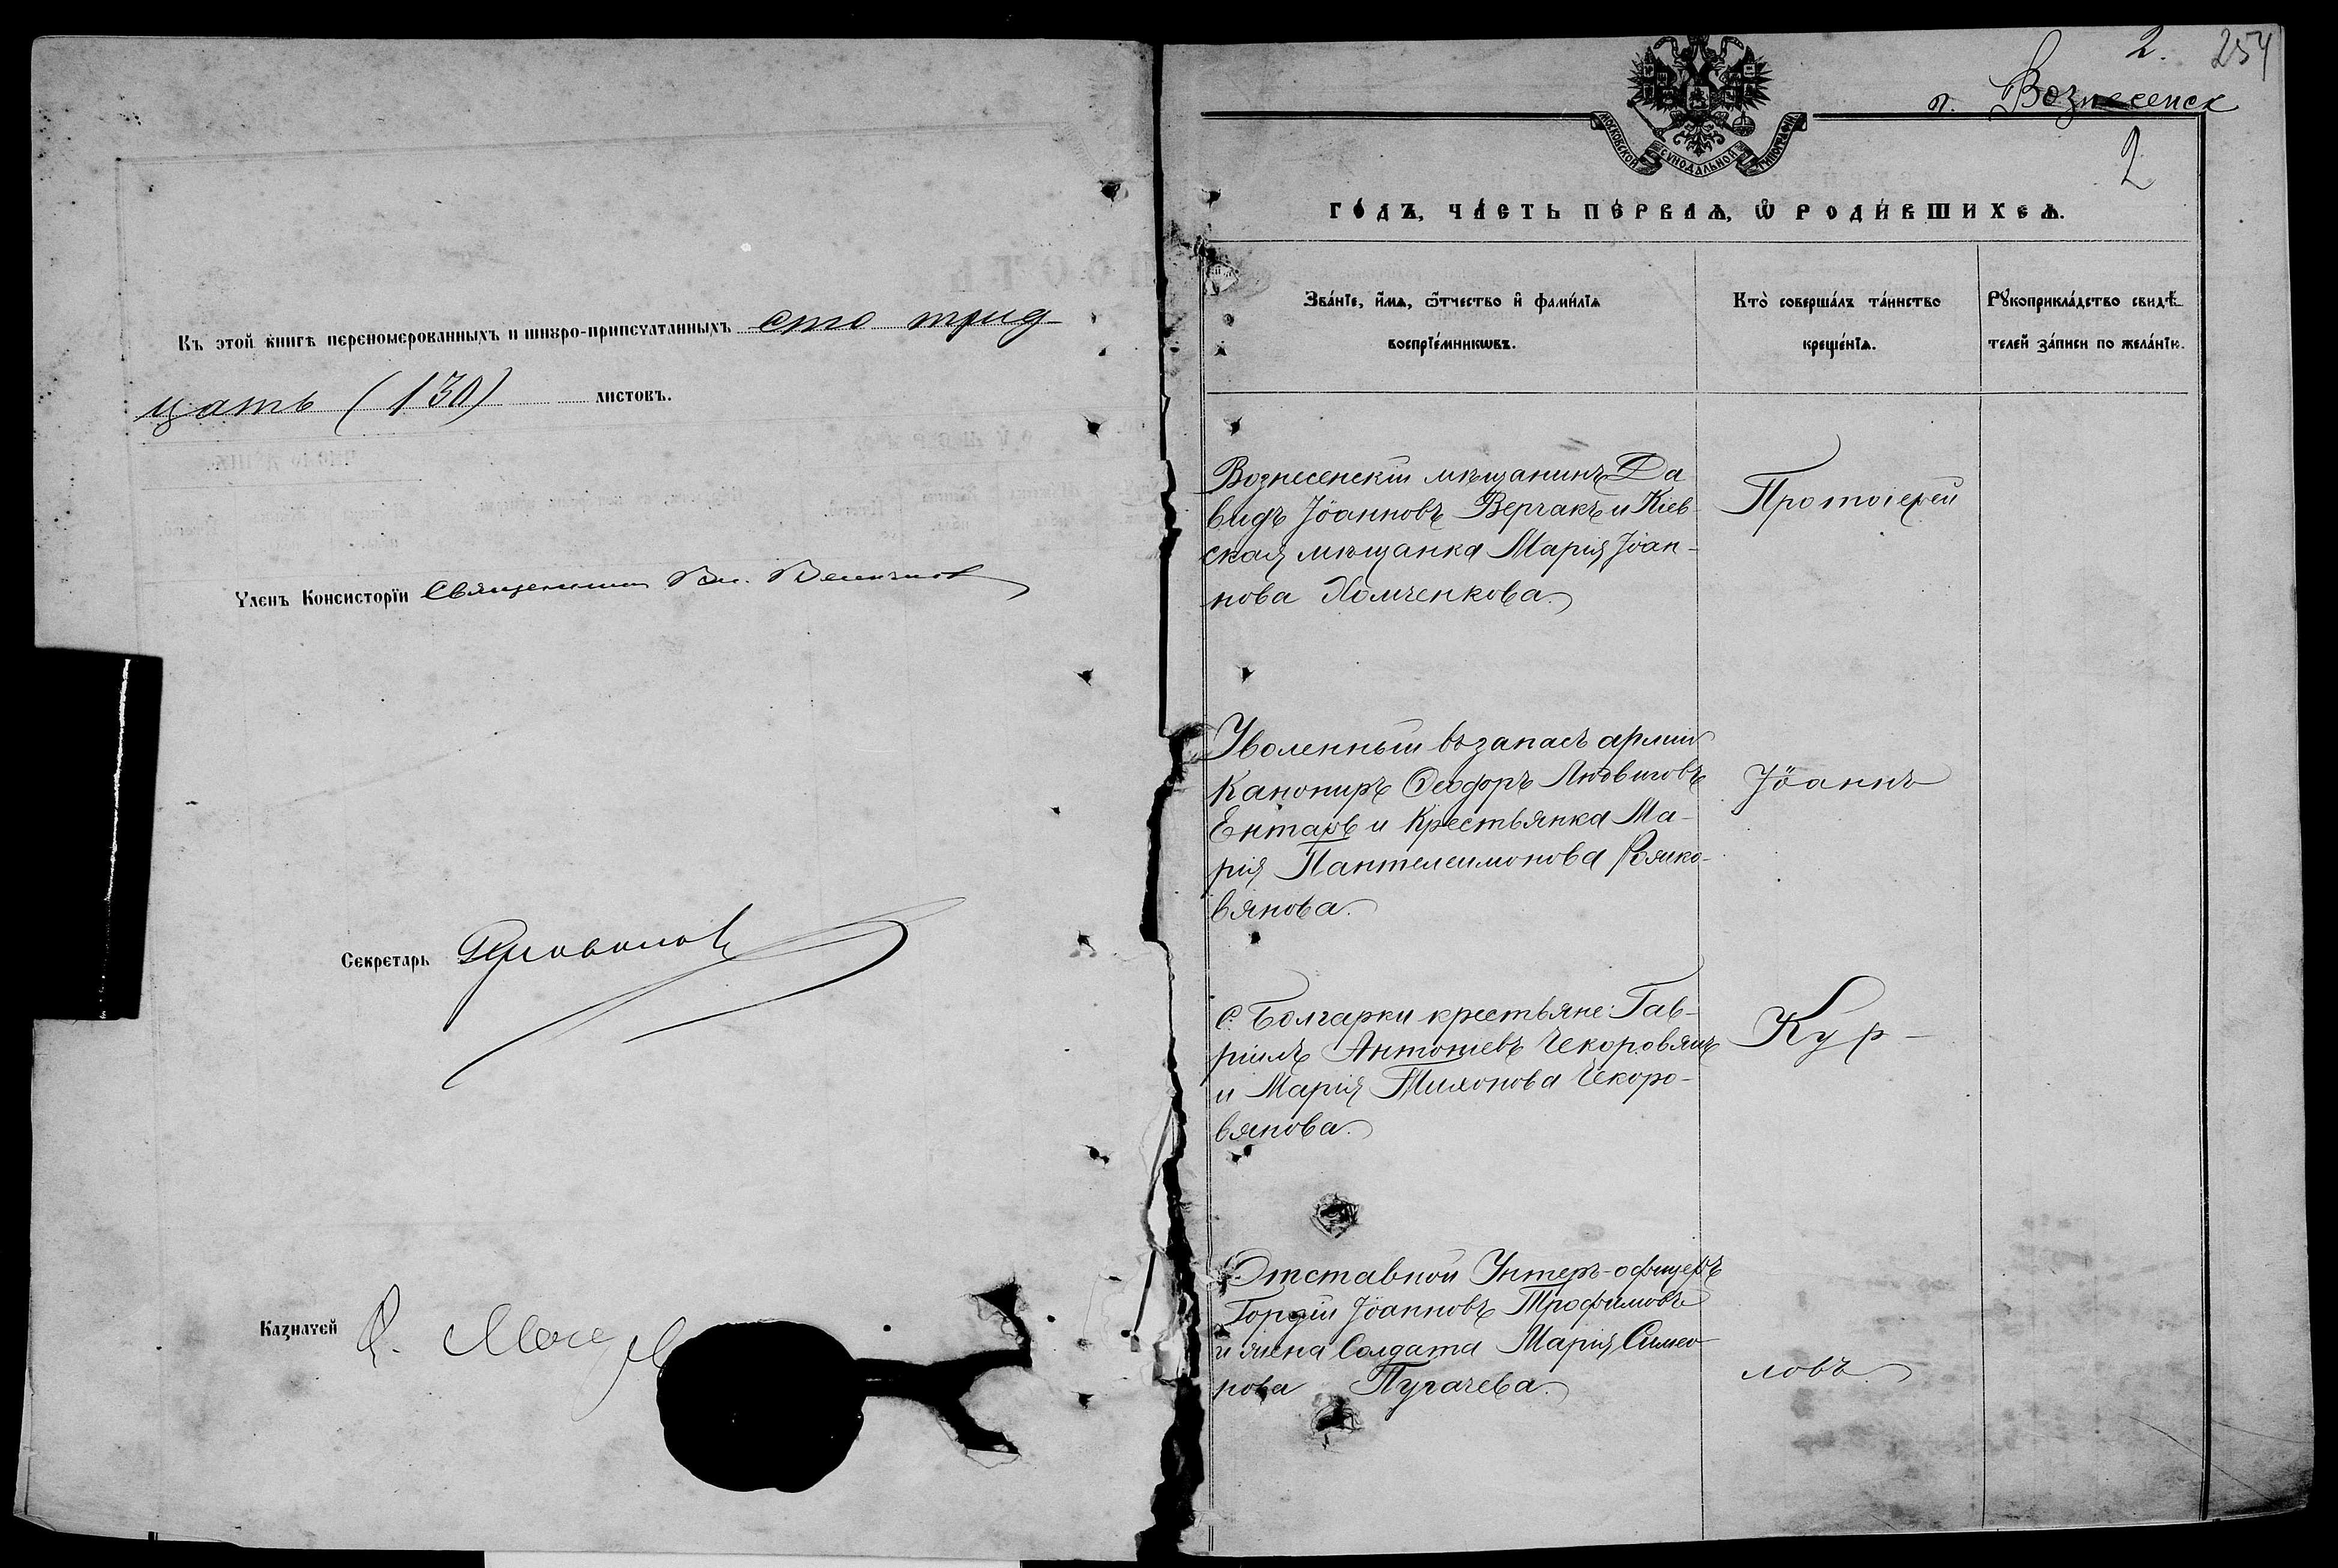 Къ этой книгѣ перепомерованныхъ и шнуро-припечатанныхъ сто трид-
цать (130) листовъ.
Членъ Консисторїи Священникъ Вл.
Секретарь
Казначей
2. 254
г. Вознесенск
2
МОСКОВСКОЙ СѴНОДАЛЬНОЙ ТИПОГРАФІИ
ГО́ДЪ, ЧА́СТЬ ПЕ́РВАѦ, Ѽ РОДИ́ВШИХСѦ.
Зва́нїе, и҆́мѧ, ѻ҆́тчество и҆ фами́лїѧ
воспрїе́мникѡвъ.
Кто̀ соверша́лъ та́инство
креще́нїѧ.
Рꙋкоприкла́дство свидѣ́-
телей за́писи по жела́нїю.
Вознесенскій мѣщанинъ Да
видъ Іоанновъ Верчакъ и Кіев-
ская мѣщанка Марія Іоан-
нова Хомченкова.
Уволенный въ запасъ арміи
Канониръ Ѳеодоръ Людвиговъ
Ентаръ и Крестьянка Ма-
рія Пантелеимонова
вянова.
С. Болгарки крестьяне: Гав-
ріилъ Антоніевъ Чекоровянъ
и Марія Тихонова Чекоро-
вянова.
Отставной Унтеръ-офицеръ
Гордій Іоанновъ Трофимовъ
и жена Солдата Марія Симео-
нова Пугачева.
Протоіерей
Іоаннъ
Кур-
ловъ.